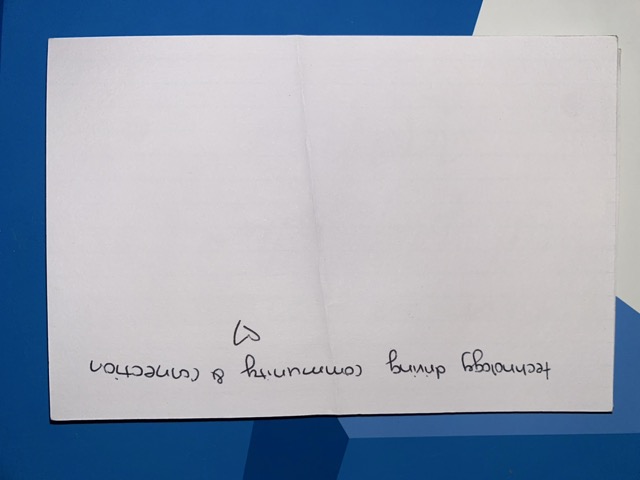 technology driving community & connection
♡